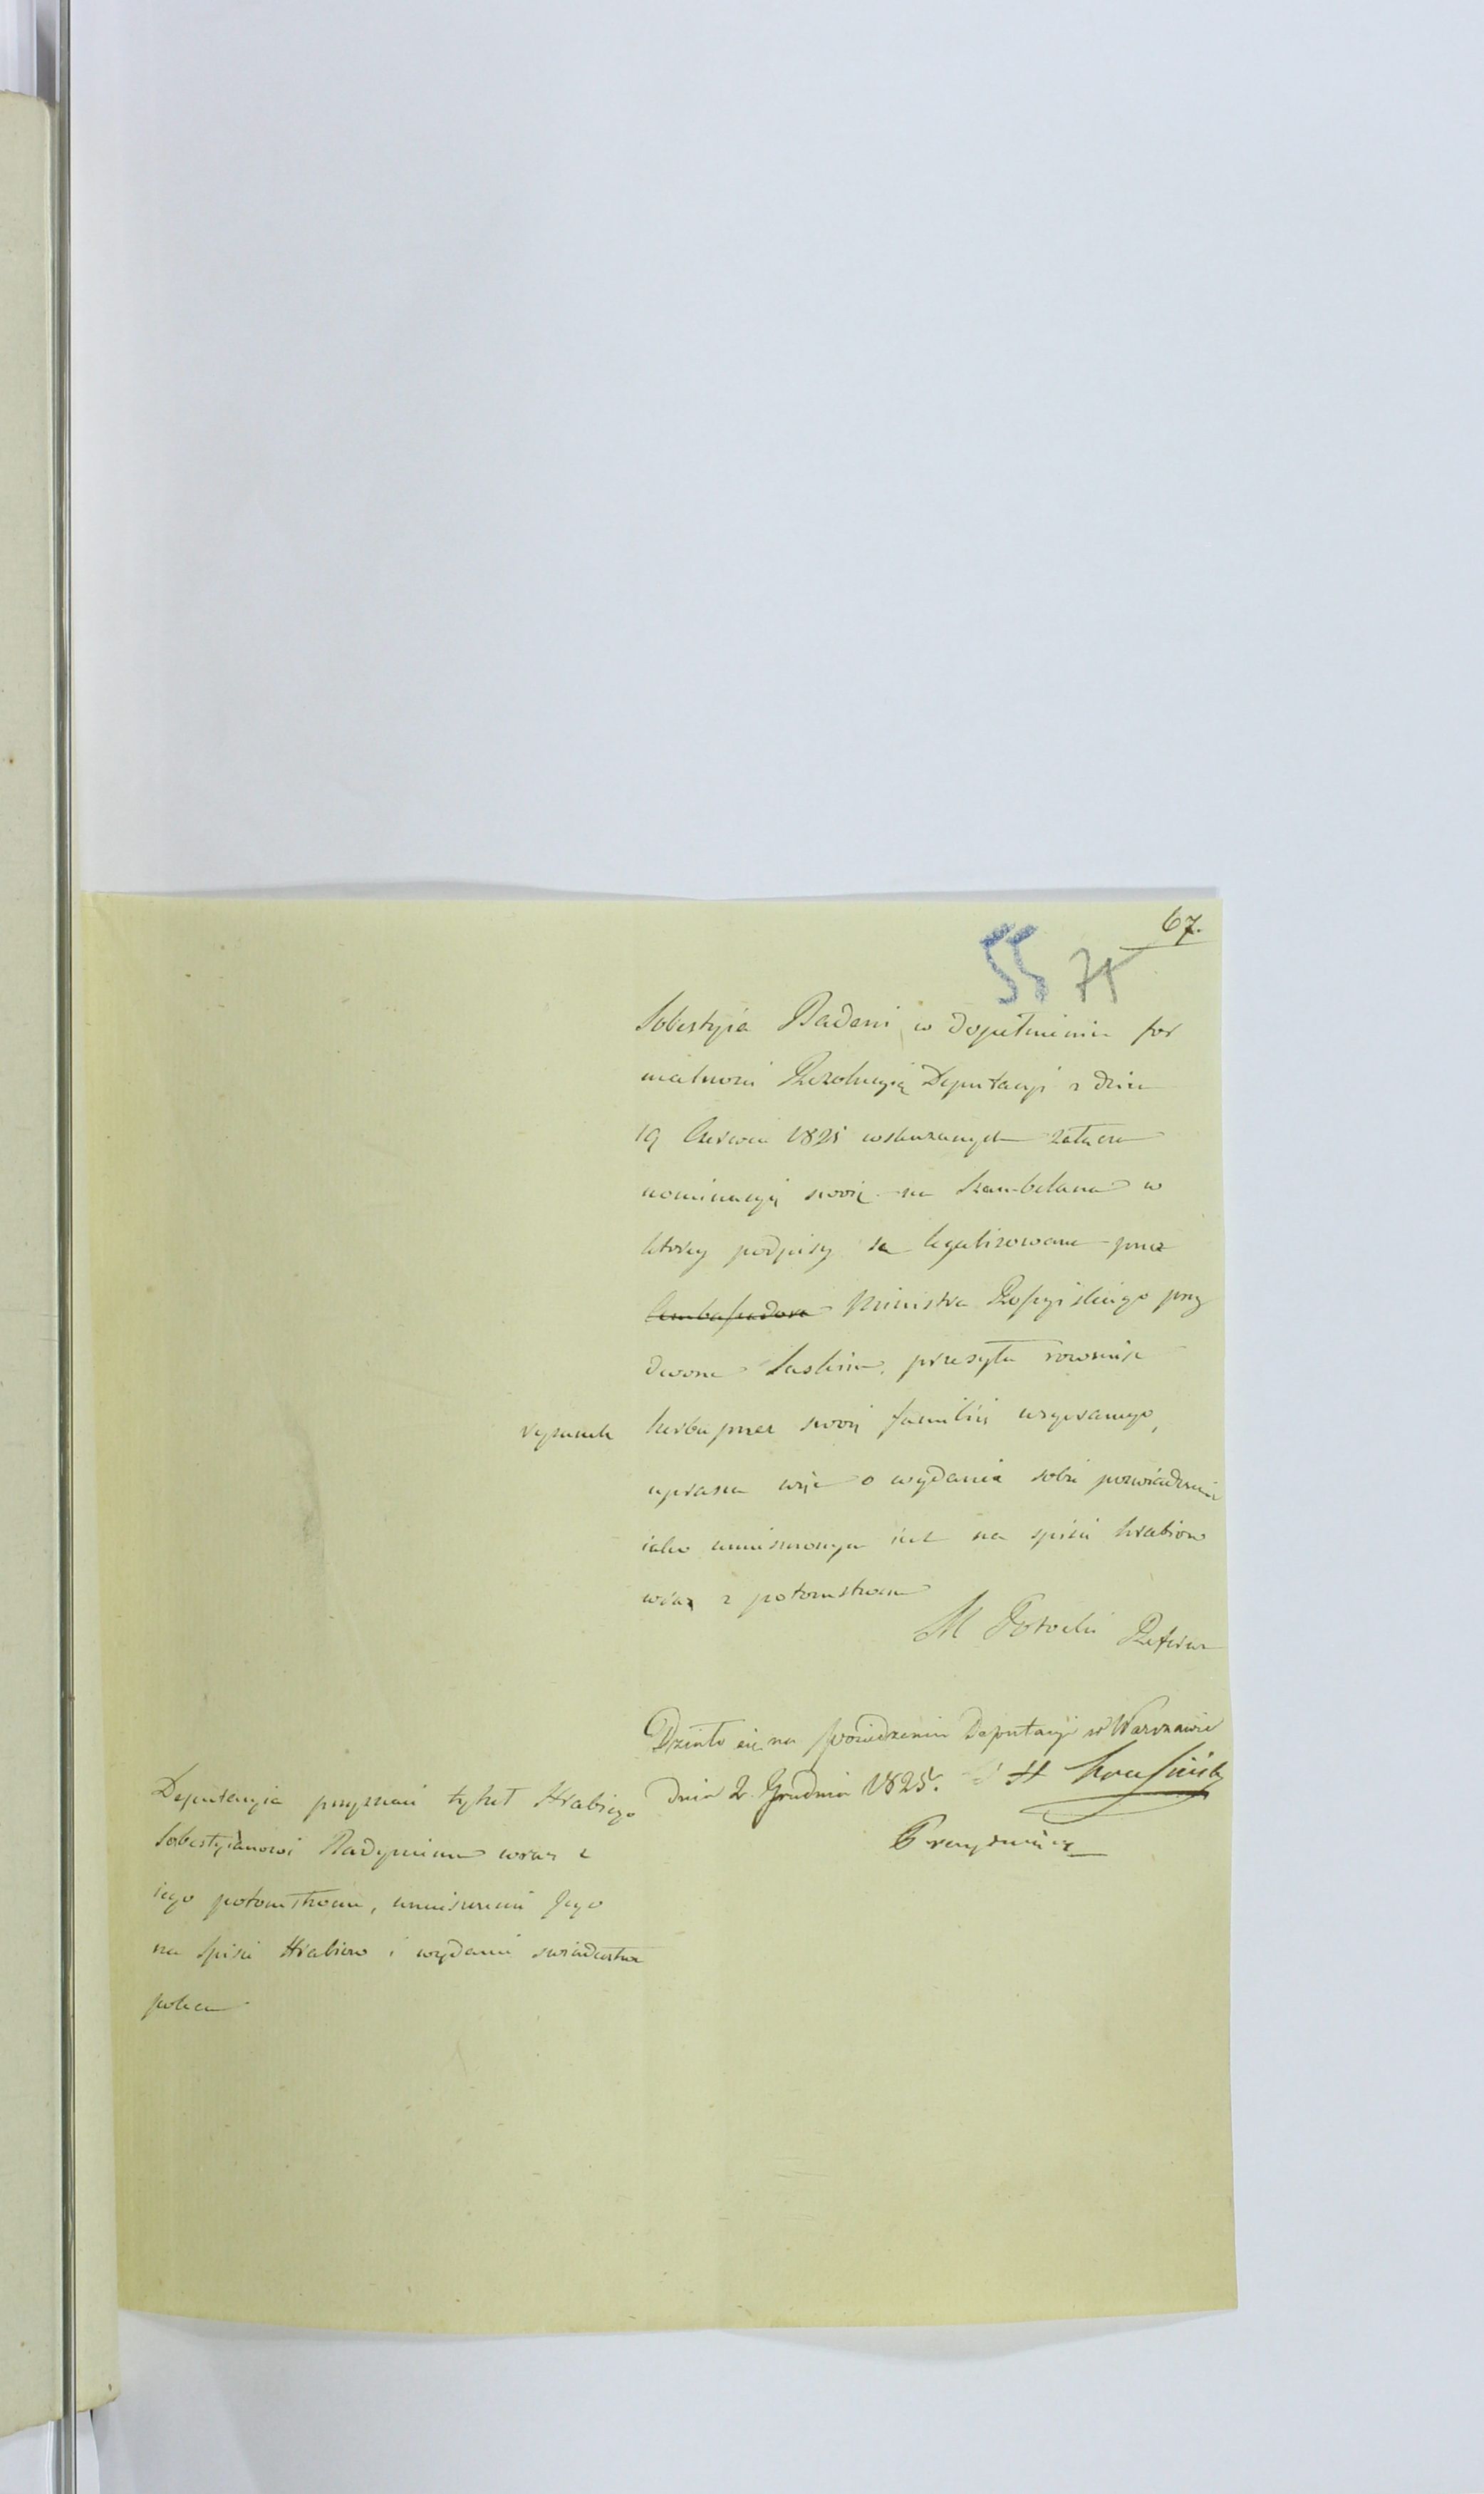 67.
55 71
Sebestyia Badeni w dopełnieniu for
malności Rezolucyią Deputacyi z dnia
19 Czerwca 1825 wskazanych załącza
nominacyą swoię na Szambelana w
ktorey podpisy są legalizowane przez
Ambassadora Ministra Rossyiskiego przy
dworze Saskim, przesyła rownież
rysunek herbu przez swoią familią używanego,
uprasza więc o wydanie sobie poswiadczenia
iako umieszczonym iest na spisie hrabiow
wraz z potomstwem
M Potocki Referen
Działo się na posiedzeniu Deputacyi w Warszawie
dnia 2. Grudnia 1825. H Krasiński
Prezyduiący
Deputacyia przyznaie tytuł Hrabiego
Sebestyianowi Badyniemu wraz z
iego potomstwem, umieszczenie Jego
na spisie Hrabiow i wydanie swiadectwa
poleca